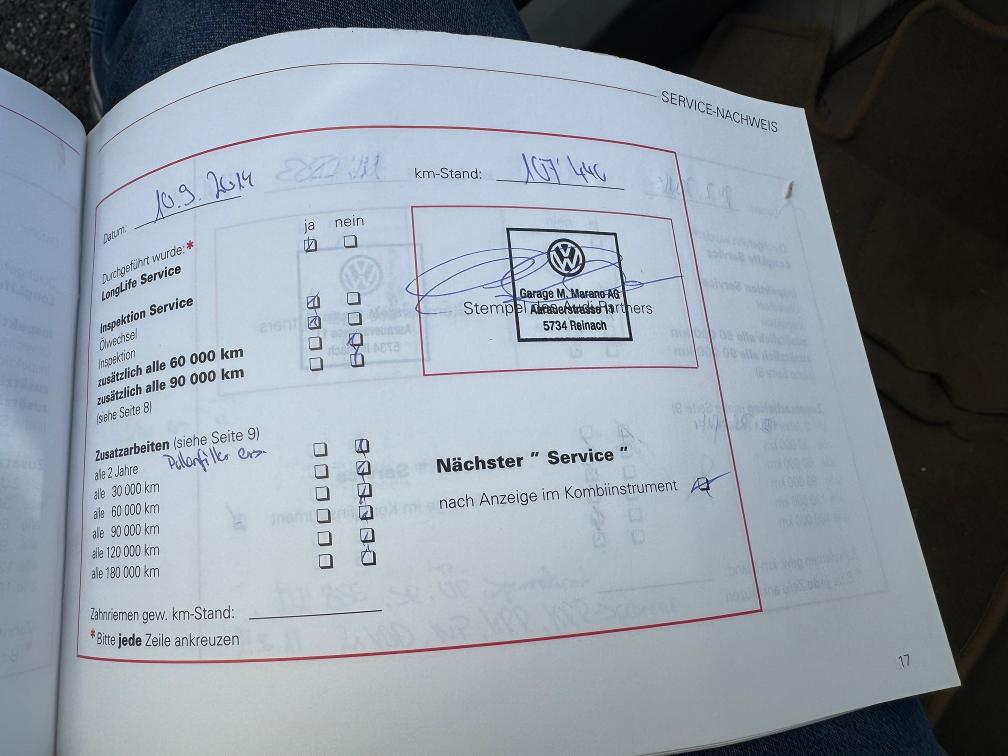 SERVICE-NACHWEIS
Datum: 10.9.2014
km-Stand: 107'440
ja nein
Durchgeführt wurde:*
LongLife Service
Inspektion Service
Ölwechsel
Inspektion
zusätzlich alle 60 000 km
zusätzlich alle 90 000 km
(siehe Seite 8)
Stempel des Audi-Partners
Garage M. Marano AG
Aarauerstrasse 11
5734 Reinach
Zusatzarbeiten (siehe Seite 9)
alle 2 Jahre Pollenfilter ers.
alle 30 000 km
alle 60 000 km
alle 90 000 km
alle 120 000 km
alle 180 000 km
Nächster " Service "
nach Anzeige im Kombiinstrument
Zahnriemen gew. km-Stand:
*Bitte jede Zeile ankreuzen
17